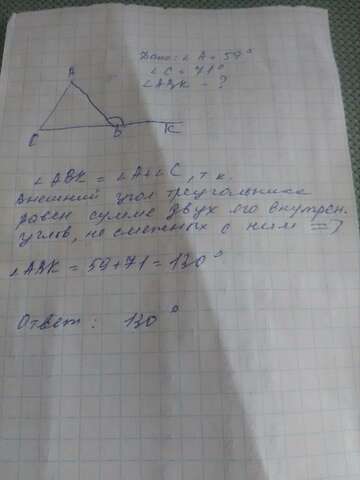 Дано: ∠A = 59°
∠C = 71°
∠ABK - ?
A
C
B
K
∠ABK = ∠A+∠C, т.к.
внешний угол треугольника
равен сумме двух его внутрен.
углов, не смежных с ним =>
∠ABK = 59+71 = 130°
Ответ: 130°